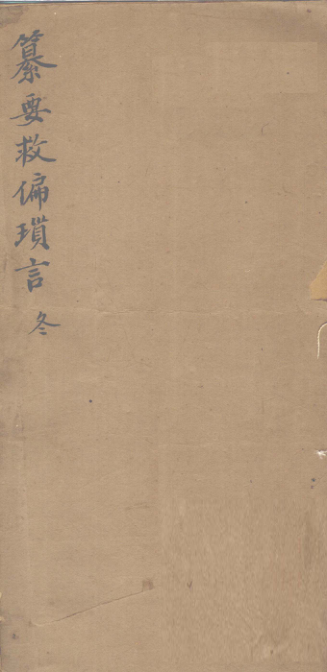 纂要救偏瑣言 冬